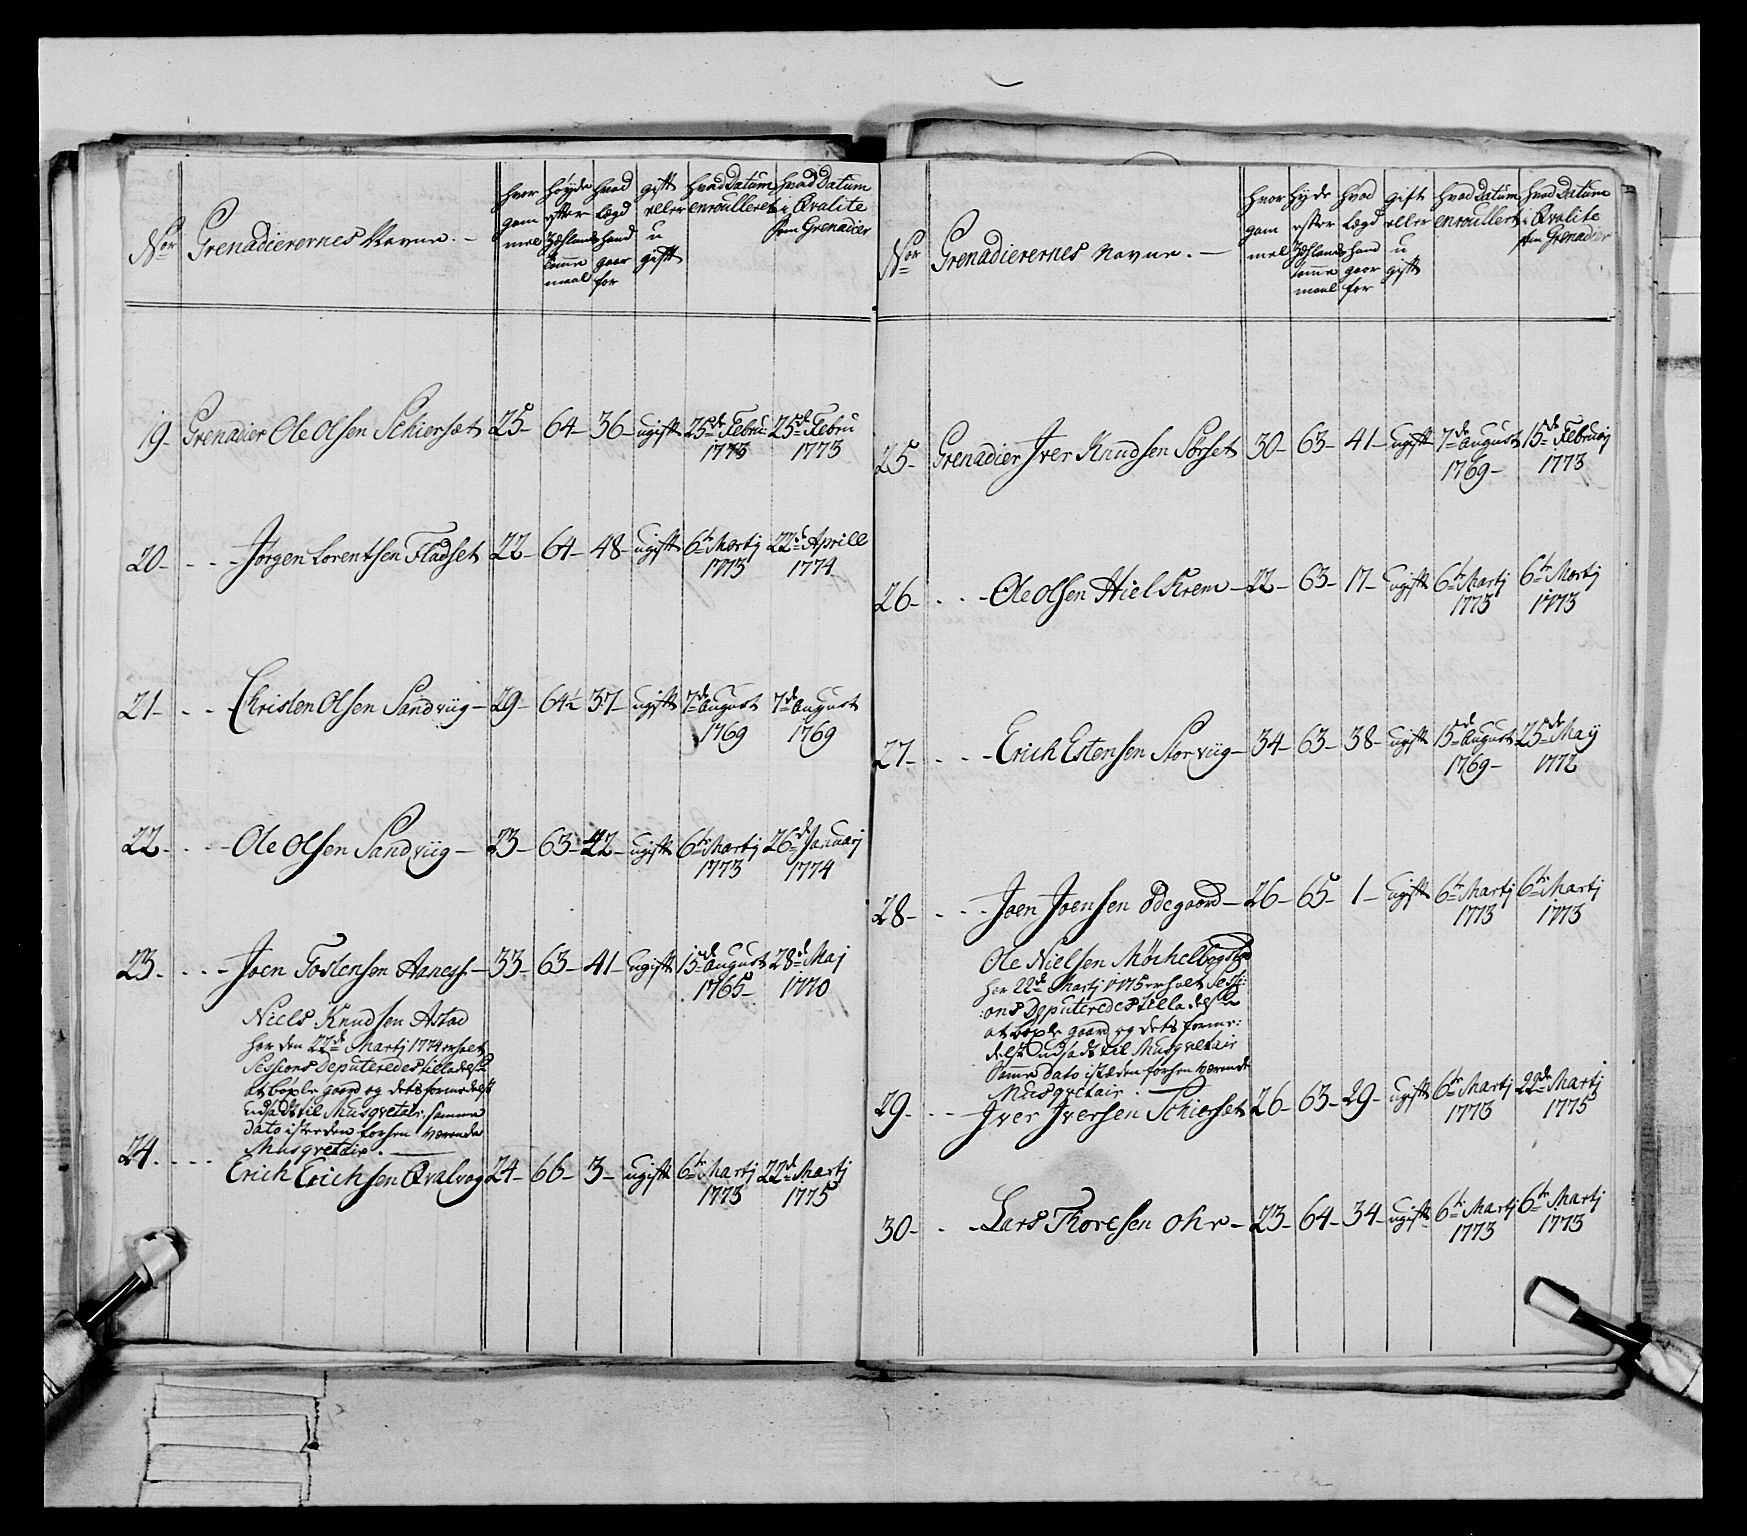 Nor Grenadierernes Navne. hvor gammel høyde efter Zßlands tomme maal hvad Lægd hand gaar for gift eller ugift hvad Datum enroulleret hvad Datum i Qvalite som Grenadier
19 Grenadier Ole Olsen Schierset 25 64 36 ugift 25de Febru: 1773 25de Febru 1773
20 Jørgen Lorentsen Fladset 22 64 48 ugift 6te Martj 1773 22de Aprill 1774
21 Christen Olsen Sandviig 29 64½ 37 ugift 7de August 1769 7de August 1769
22 Ole Olsen Sandviig 23 63 42 ugift 6te Martj 1773 26de Januarj 1774
23 Joen Tostensen Aaness 33 63 41 ugift 15de August 1765 28de Maj 1770
Niels Knudsen Astad
har den 22de Martj 1774 erholt
Sessions Deputeredes tilladelse
at bøxle gaard og dets formedelst
udsadt til Musqvetair samme
dato isteden forhen værende
Musqvetair.
24 Erich Erichsen Qvalvog 24 66 3 ugift 6te Martj 1773 22de Martj 1775
Nor Grenadierernes Navne. hvor gammel høyde efter Zßlands tomme maal hvad Lægd hand gaar for gift eller ugift hvad Datum enroullert hvad Datum i Qvalite som Grenadier
25 Grenadier Iver Knudsen Sørset 30 63 41 ugift 7de August 1769 15de Februarj 1773
26 Ole Olsen Hielkrem 22 63 17 ugift 6te Martj 1773 6te Martj 1773
27 Erich Estensen Storviig 34 63 38 ugift 15de August 1769 25de Maÿ 1772
28 Joen Joensen Ødegaard 26 65 1 ugift 6te Martj 1773 6te Martj 1773
Ole Nielsen
har 22de Martj 1775 erholt Sessi:
:ons Deputeredes tilladelse
at bøxle gaard og dets forme:
delst udsadt til Musqvetair
Samme dato isteden forhen værende
Musqvetair.
29 Iver Iversen Schierset 26 63 29 ugift 6te Martj 1773 22de Martj 1775
30 Lars Thoresen Ohr 23 64 34 ugift 6te Martj 1773 6te Martj 1773